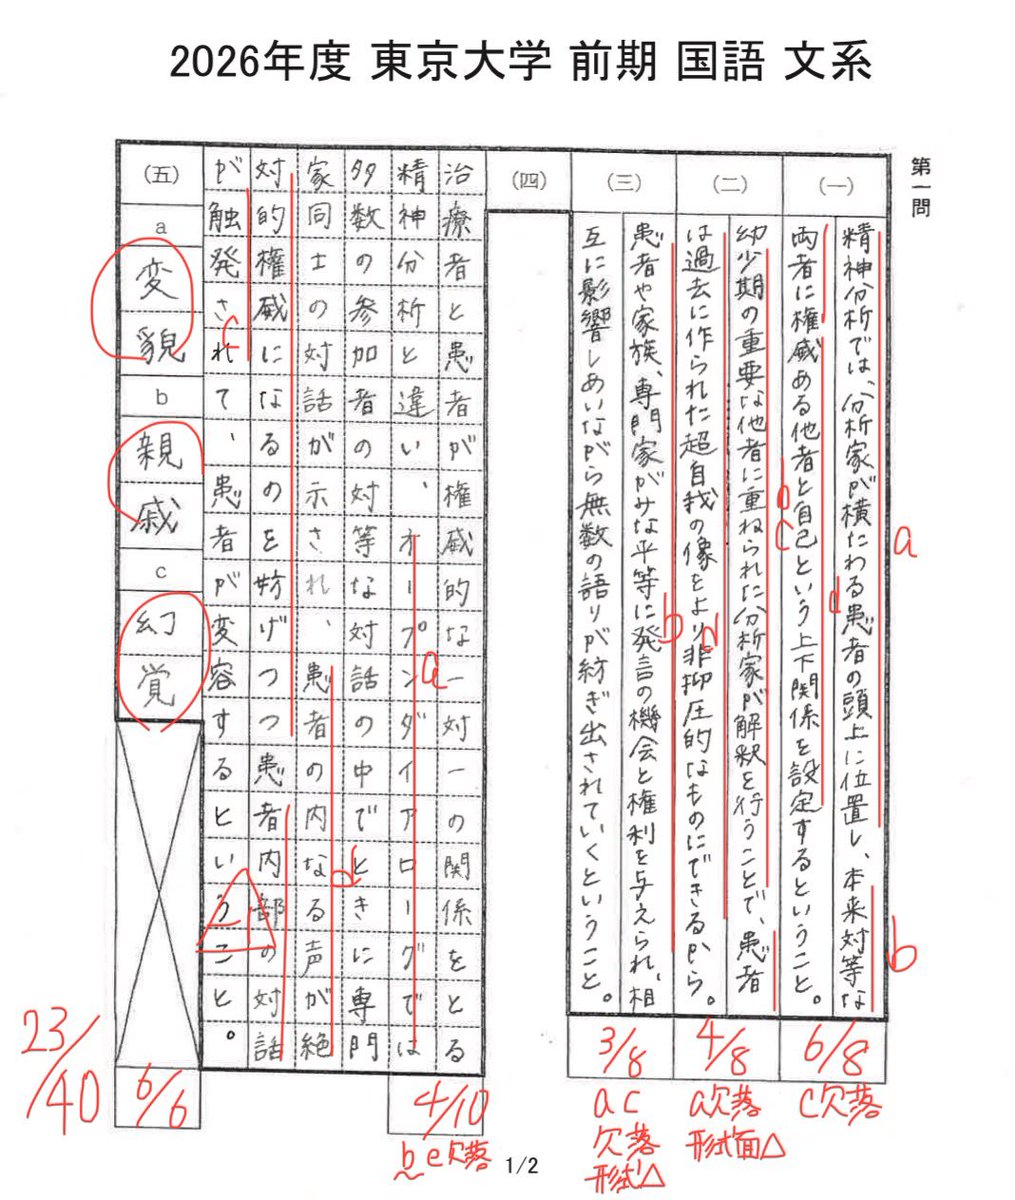 2026年度 東京大学 前期 国語 文系
第一問
(一)
精神分析では、分析家が横たわる患者の頭上に位置し、本来対等な
両者に権威ある他者と自己という上下関係を設定するということ。
(二)
幼少期の重要な他者に重ねられた分析家が解釈を行うことで、患者
は過去に作られた超自我の像をより非抑圧的なものにできるから。
(三)
患者や家族、専門家がみな平等に発言の機会と権利を与えられ、相
互に影響しあいながら無数の語りが紡ぎ出されていくということ。
(四)
治療者と患者が権威的な一対一の関係をとる
精神分析と違い、オープンダイアローグでは
多数の参加者の対等な対話の中でときに専門
家同士の対話が示され、患者の内なる声が絶
対的権威になるのを妨げつつ患者内部の対話
が触発されて、患者が変容するということ。
(五)
a
変貌
b
親戚
c
幻覚
a
b
c
d
d
b
a
d
c
6/8
c欠落
4/8
a欠落
形式面△
3/8
a c
欠落
形式△
4/10
b e欠落
6/6
23/40
1/2